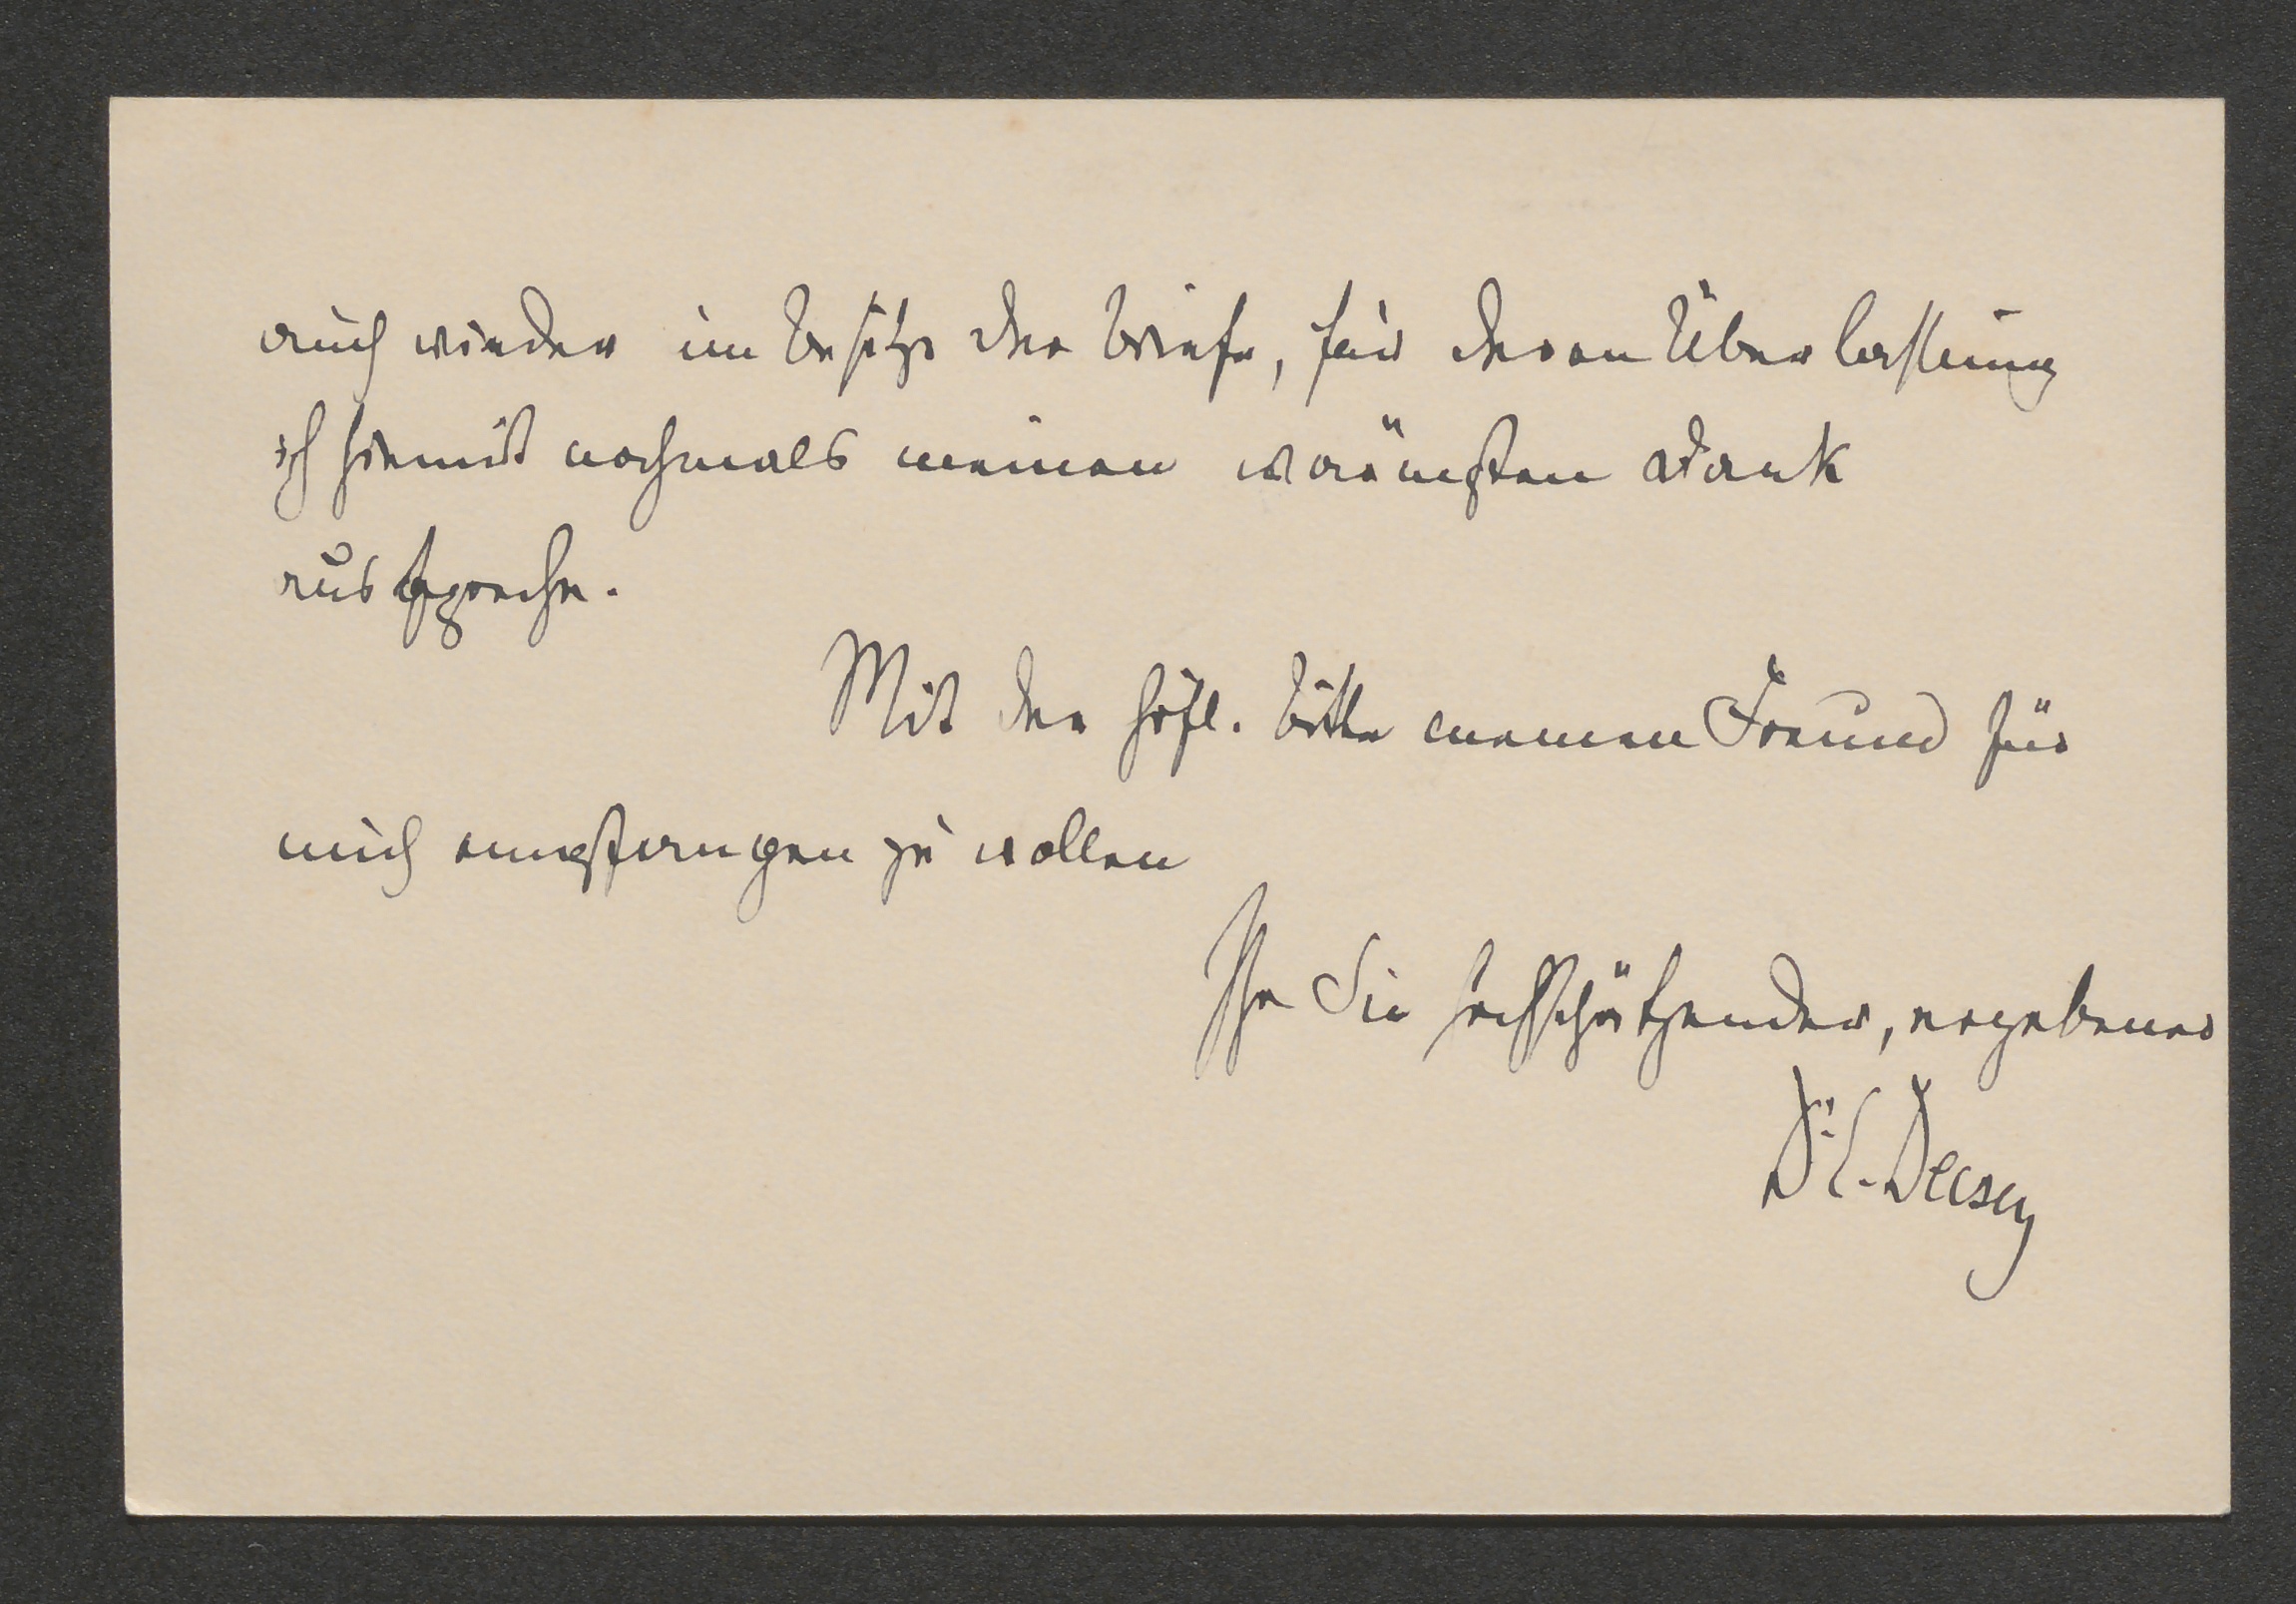 auch wieder im Besitze der Briefe, für deren Überlassung
ich hiemit nochmals meinen wärmsten Dank
ausspreche.
Mit der höfl. Bitte meinen Freund für
mich empfangen zu wollen
Ihr Sie hochschätzender, ergebener
Dr. E. Decsey